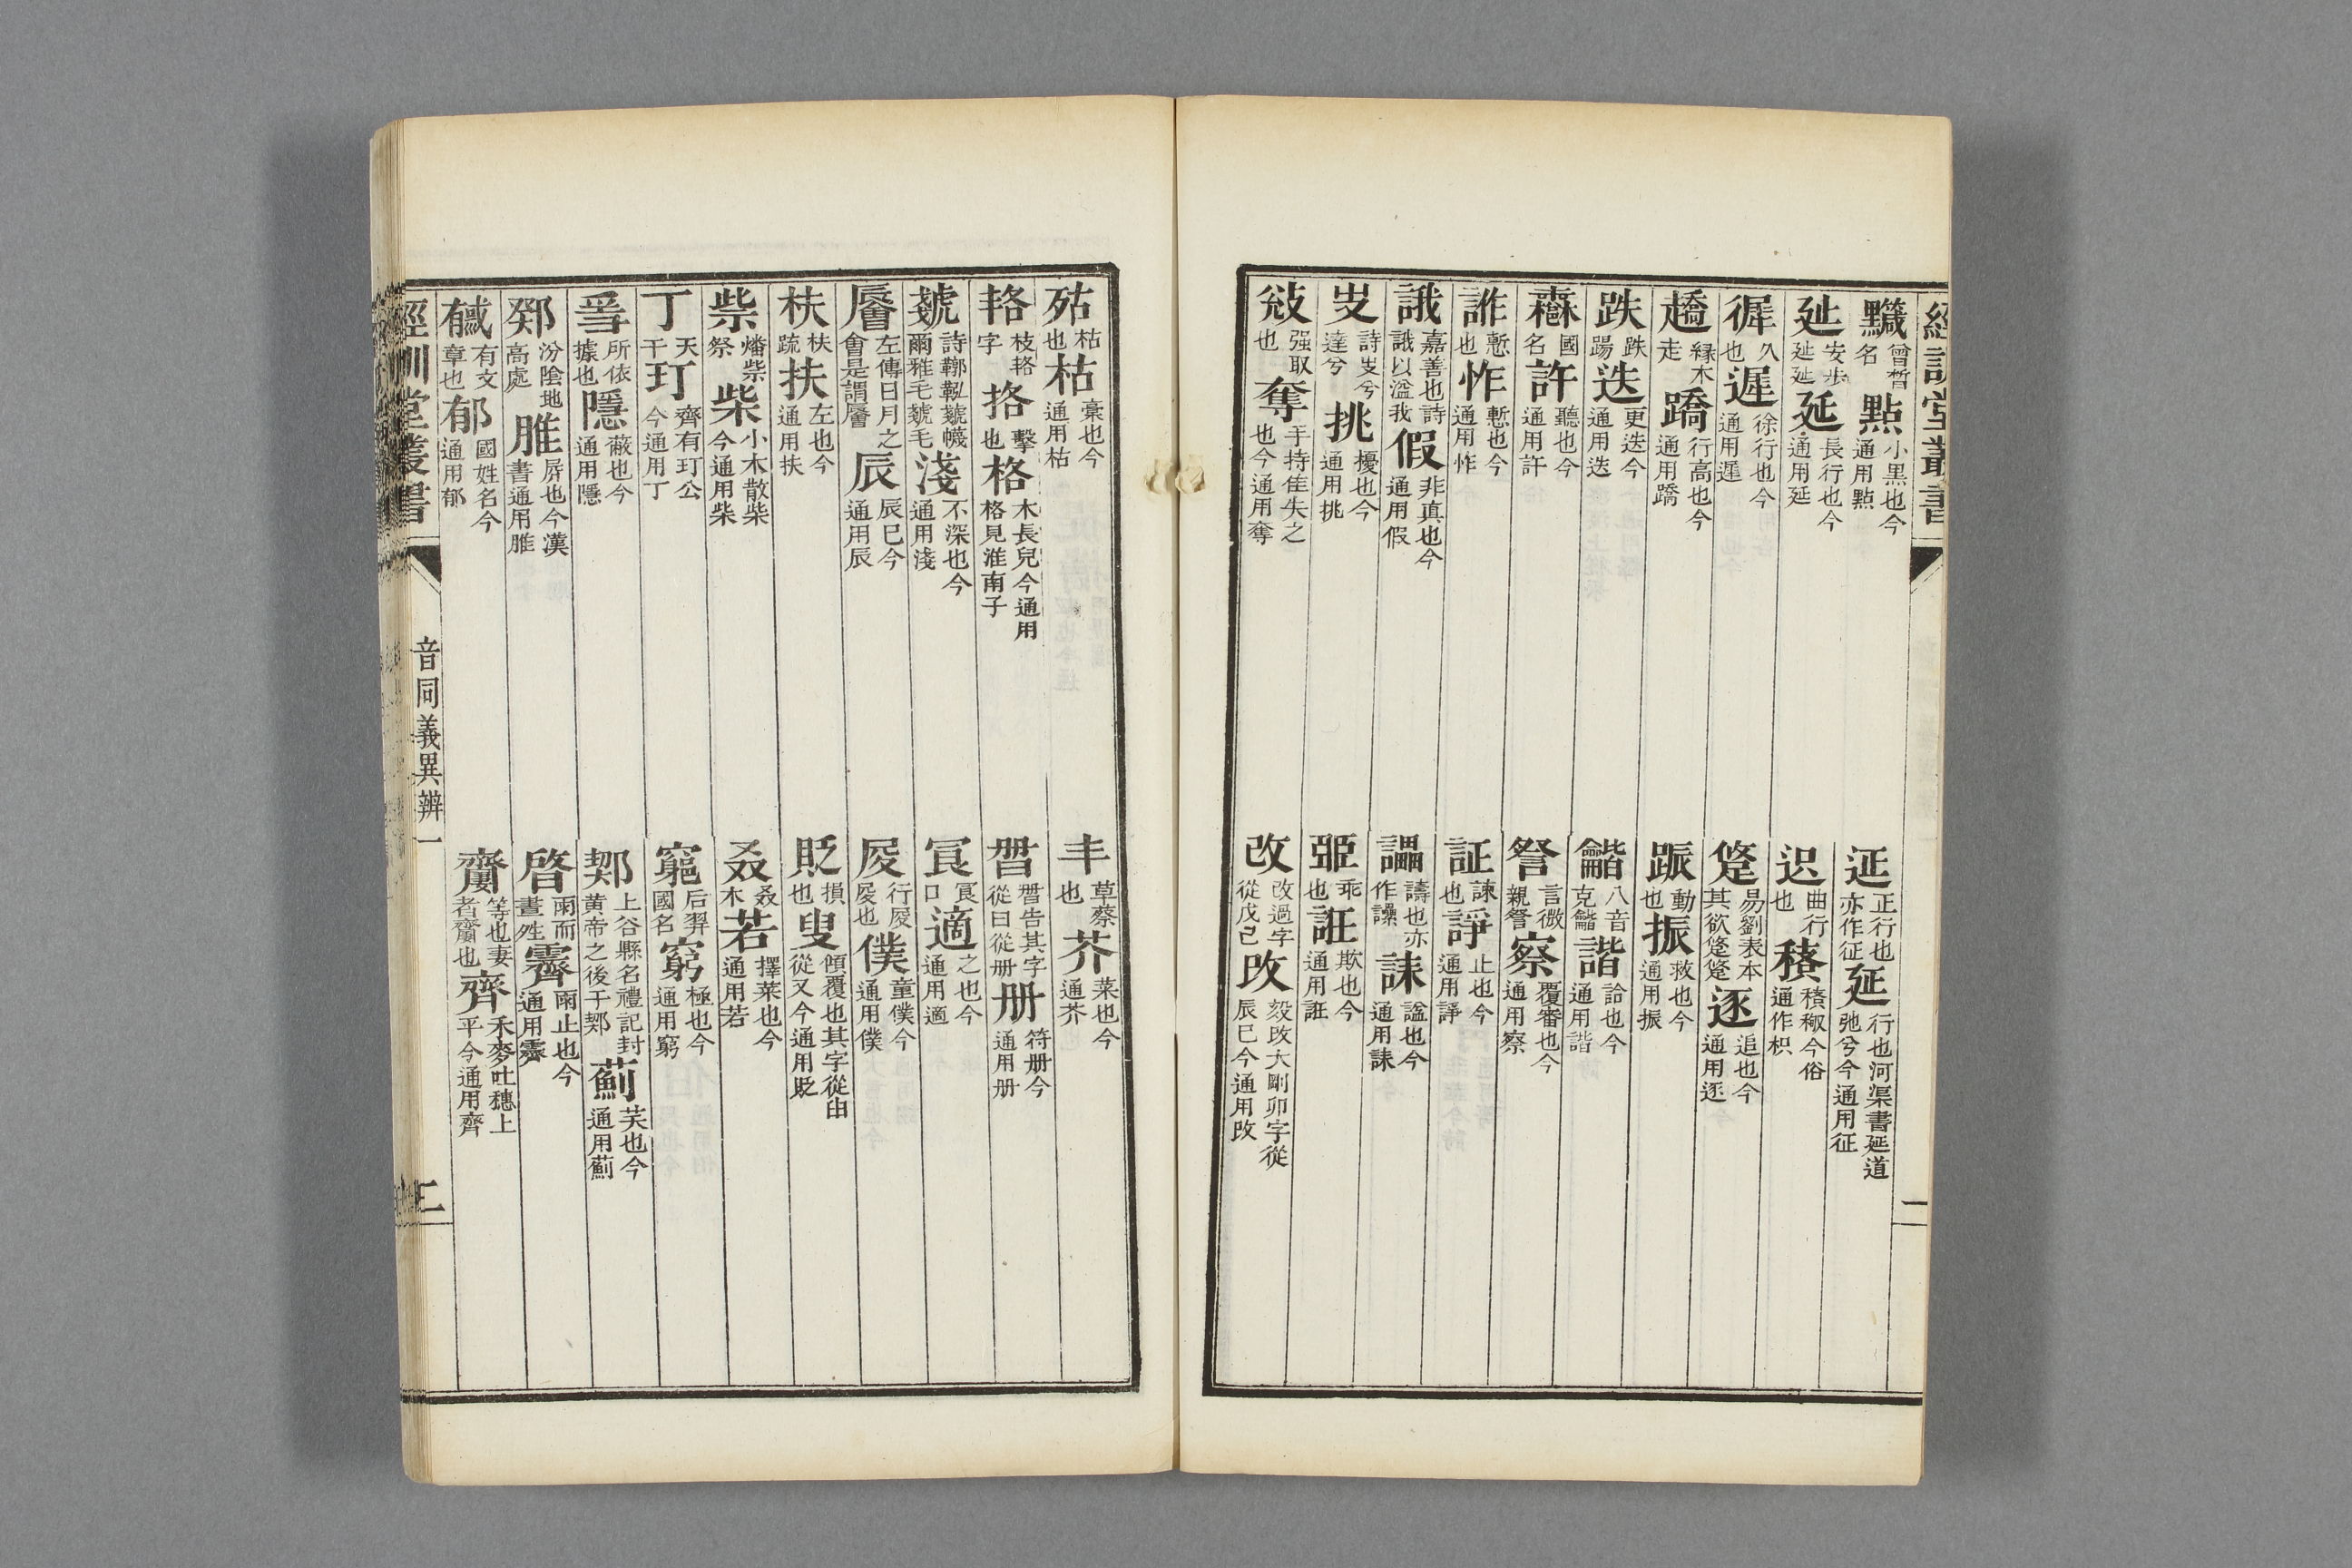 經訓堂叢書
𪒹曾晳名點小黑也今通用點
𨒌正行也亦作征延行也河渠書延道弛兮今通用征
㢟安步㢟㢟延長行也今通用延
迟曲行也
徲久也遲徐行也今通用遲
易劉表本其欲逐追也今通用逐
趫緣木走蹻行高也今通用蹻
䟴動也振救也今通用振
跌跌踼迭更迭今通用迭
龤八音克龤諧詥也今通用諧
鄦國名許聽也今通用許
詧言微親詧察覆審也今通用察
詐慙也怍慙也今通用怍
証諫也諍止也今通用諍
誐嘉善也詩誐以溢我假非真也今通用假
讄禱也亦作誄諡也今通用誄
𠬢詩𠬢兮達兮挑擾也今通用挑
臦乖也誆欺也今通用誆
敓强取也奪手持隹失之也今通用奪
改改過字從戊己攺毅攺大剛卯字從辰巳今通用攺
枯也枯槀也今通用枯
丯草蔡也芥菜也今通芥
枝字挌擊也格木長皃今通用格見淮南子
告其字從曰從册册符册今通用册
虦詩鞹鞃虦幭爾雅毛虦毛淺不深也今通用淺
口適之也今通用適
左傳日月之會是謂辰辰巳今通用辰
行也僕童僕今通用僕
枎枎疏扶左也今通用扶
貶損也傾覆也其字從甶從又今通用貶
祡燔祡祭柴小木散柴今通用柴
叒叒木若擇菜也今通用若
丁天干玎齊有玎公今通用丁
竆后羿國名窮極也今通用窮
所依據也隱蔽也今通用隱
上谷縣名禮記封黃帝之後于薊芺也今通用薊
鄈汾陰地高處脽屍也今漢書通用脽
晵雨而晝姓霽雨止也今通用霽
有文章也郁國姓名今通用郁
等也妻者也齊禾麥吐穗上平今通用齊
經訓堂叢書
音同義異辨
二